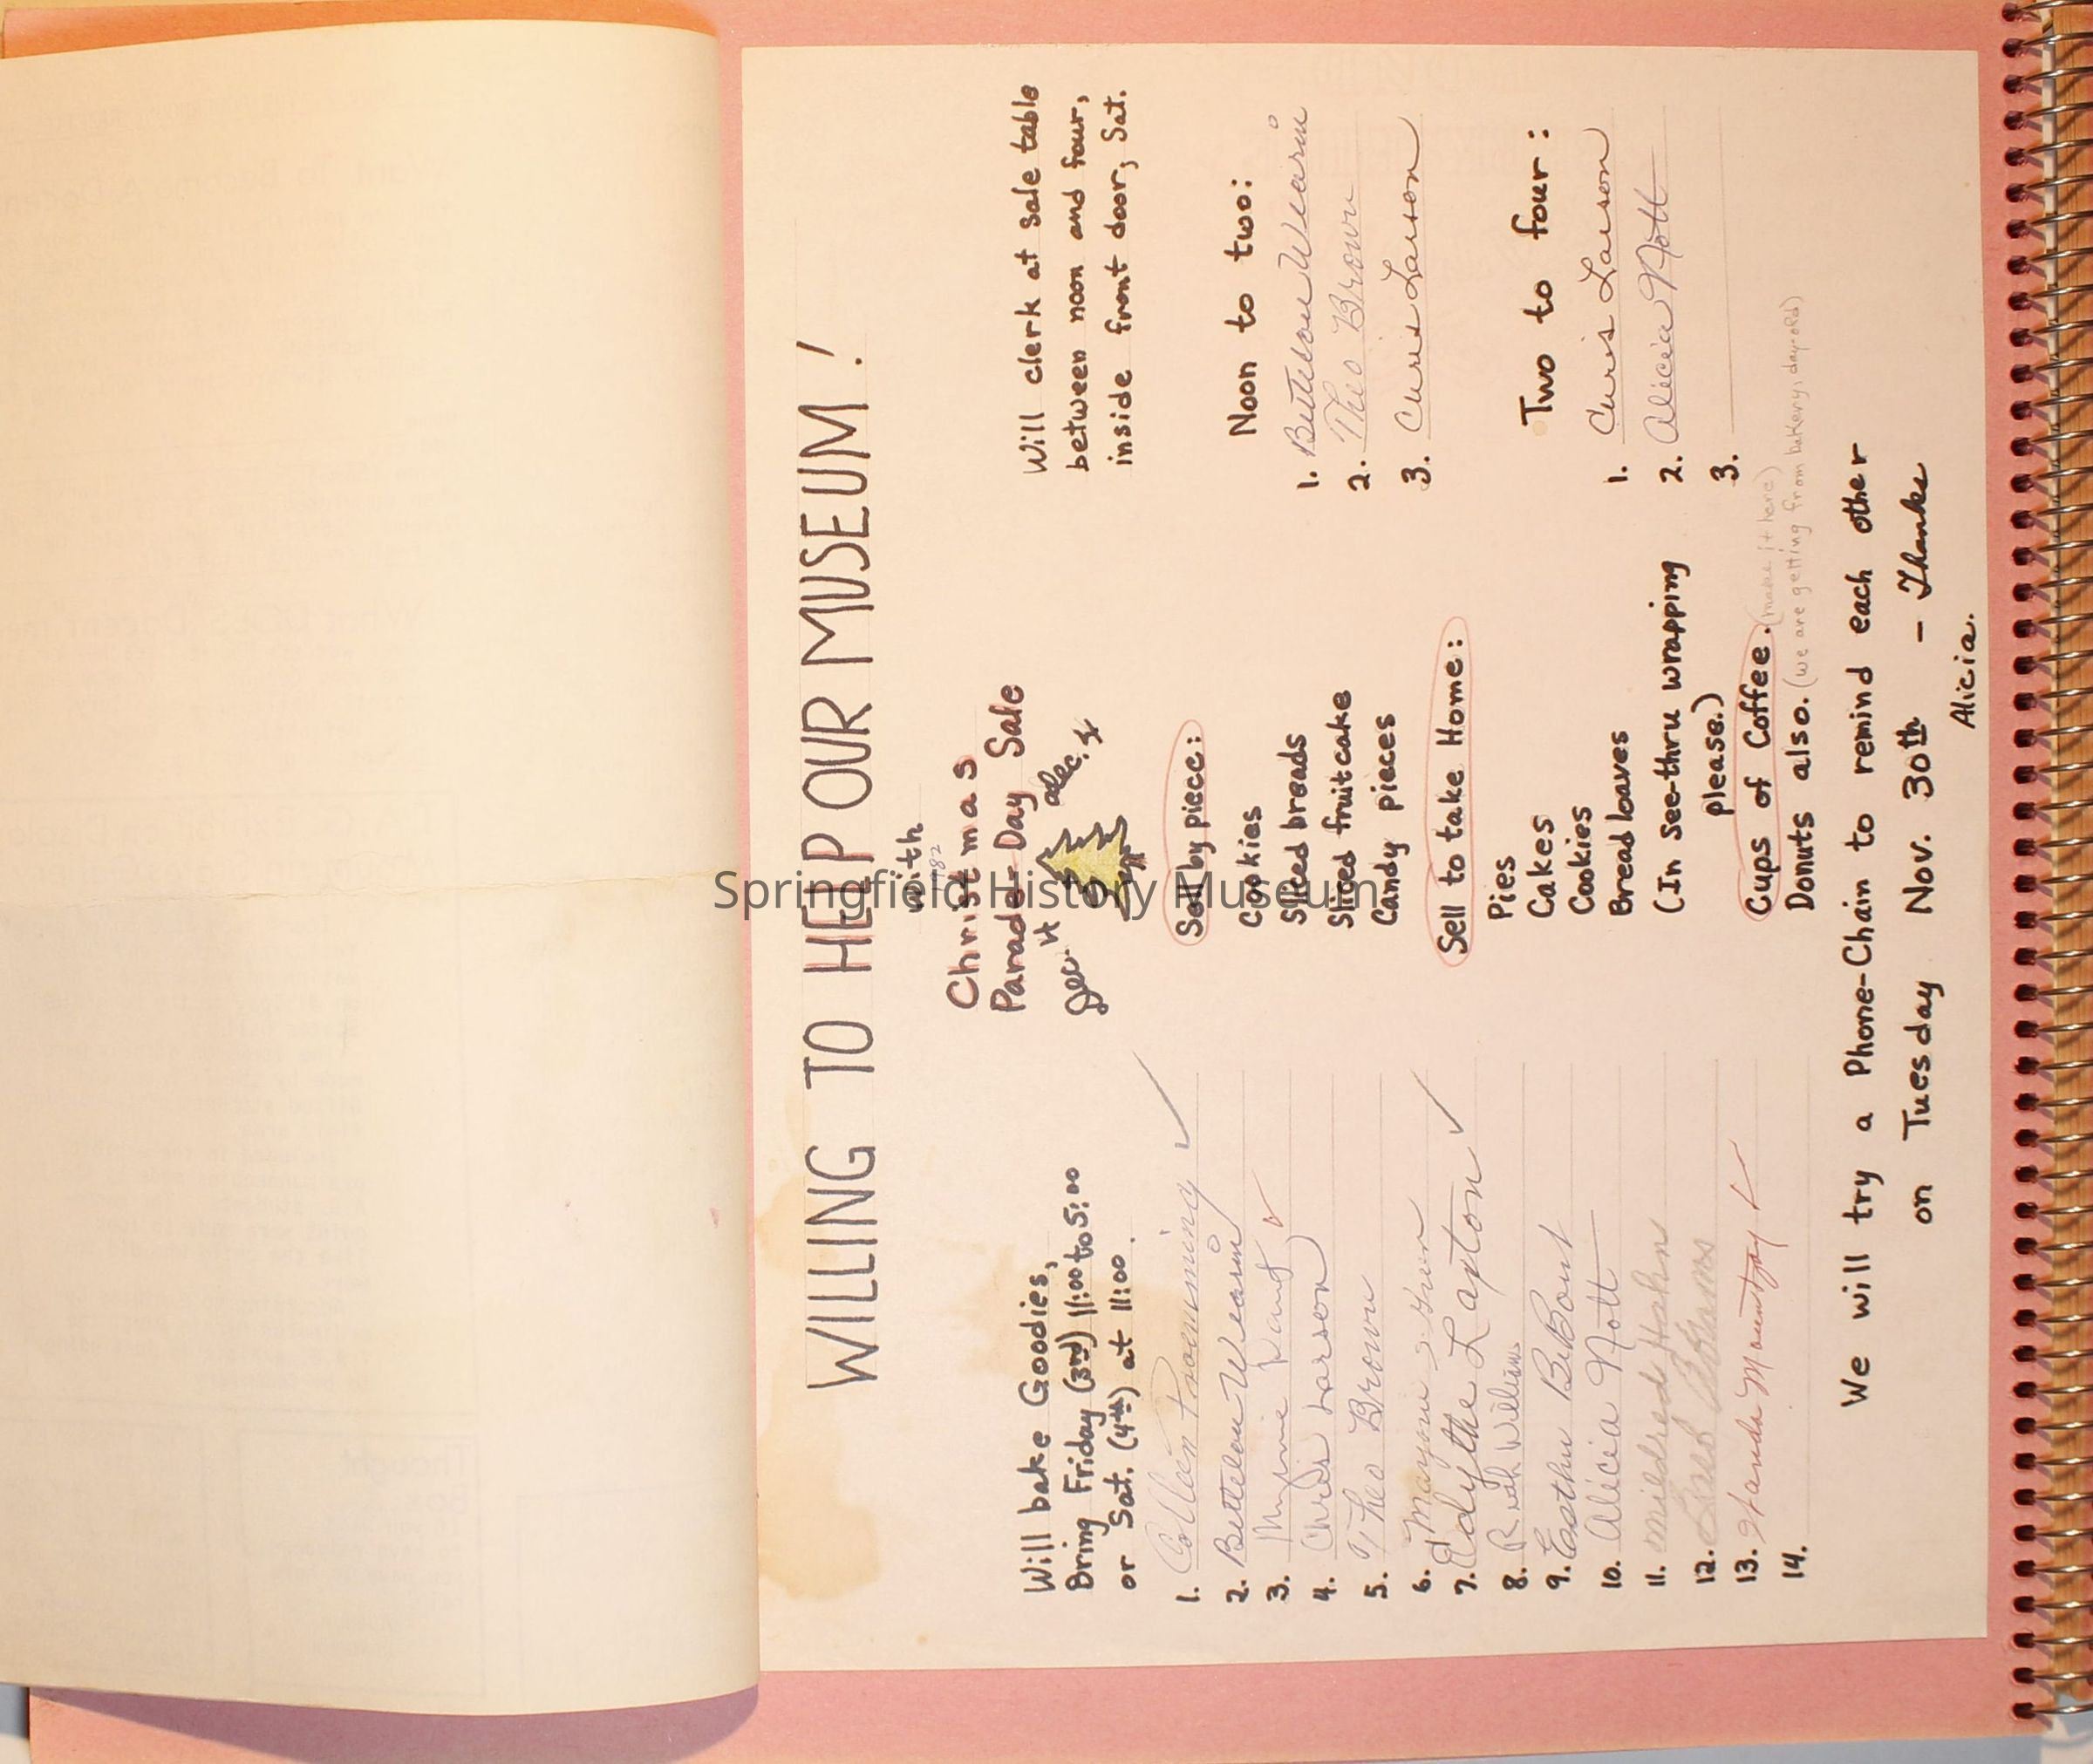 WILLING TO HELP OUR MUSEUM!
with
1982
Christmas
Parade-Day Sale
Dec. 4 Dec. 4
Will bake Goodies,
Bring Friday (3rd) 11:00 to 5:00
or Sat. (4th) at 11:00.
1. Colleen
2. Bettelou Wearin
3. Minnie
4. Chris Larson
5. Theo Brown
6. Mayme
7. Edythe Lapton
8. Ruth Williams
9. Esther B. Bount
10. Alicia Nott
11. Mildred Hahn
12. Adams
13. Wanda Mountjoy
14.
Sell by piece:
Cookies
Sliced breads
Sliced fruitcake
Candy pieces
Sell to take Home:
Pies
Cakes
Cookies
Bread loaves
(In see-thru wrapping
please.)
Cups of Coffee. (make it here)
Donuts also. (we are getting from bakery, day-old)
Will clerk at sale table
between noon and four,
inside front door, Sat.
Noon to two:
1. Bettelou Wearin
2. Theo Brown
3. Chris Larson
Two to four:
1. Chris Larson
2. Alicia Nott
3.
We will try a Phone-Chain to remind each other
on Tuesday Nov. 30th - Thanks
Alicia.
Springfield History Museum